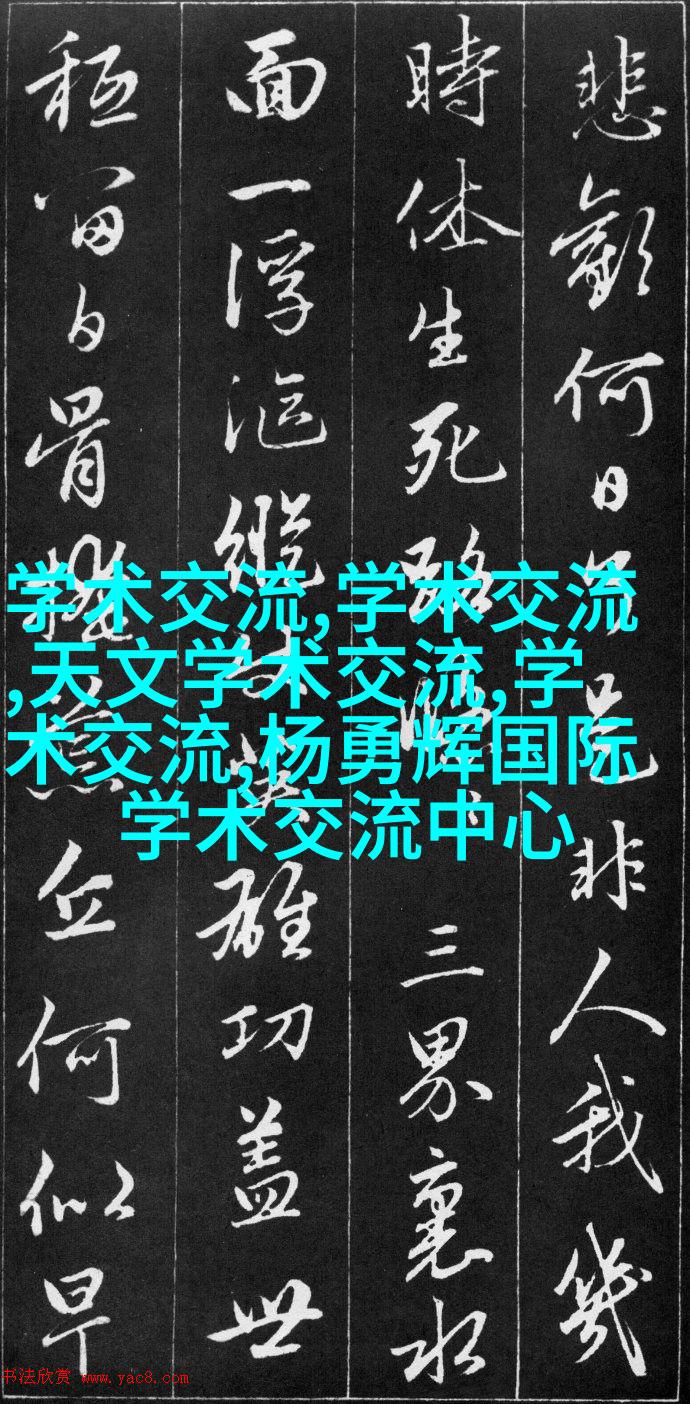 悲歡何日是非人我幾
時休生死路三界裏水
面一浮漚縱雄功蓋世
秪留白骨丘何似早
学术交流,学术交流
,天文学术交流,学
术交流,杨勇辉国际
学术交流中心
书法欣赏 www.yac8.com